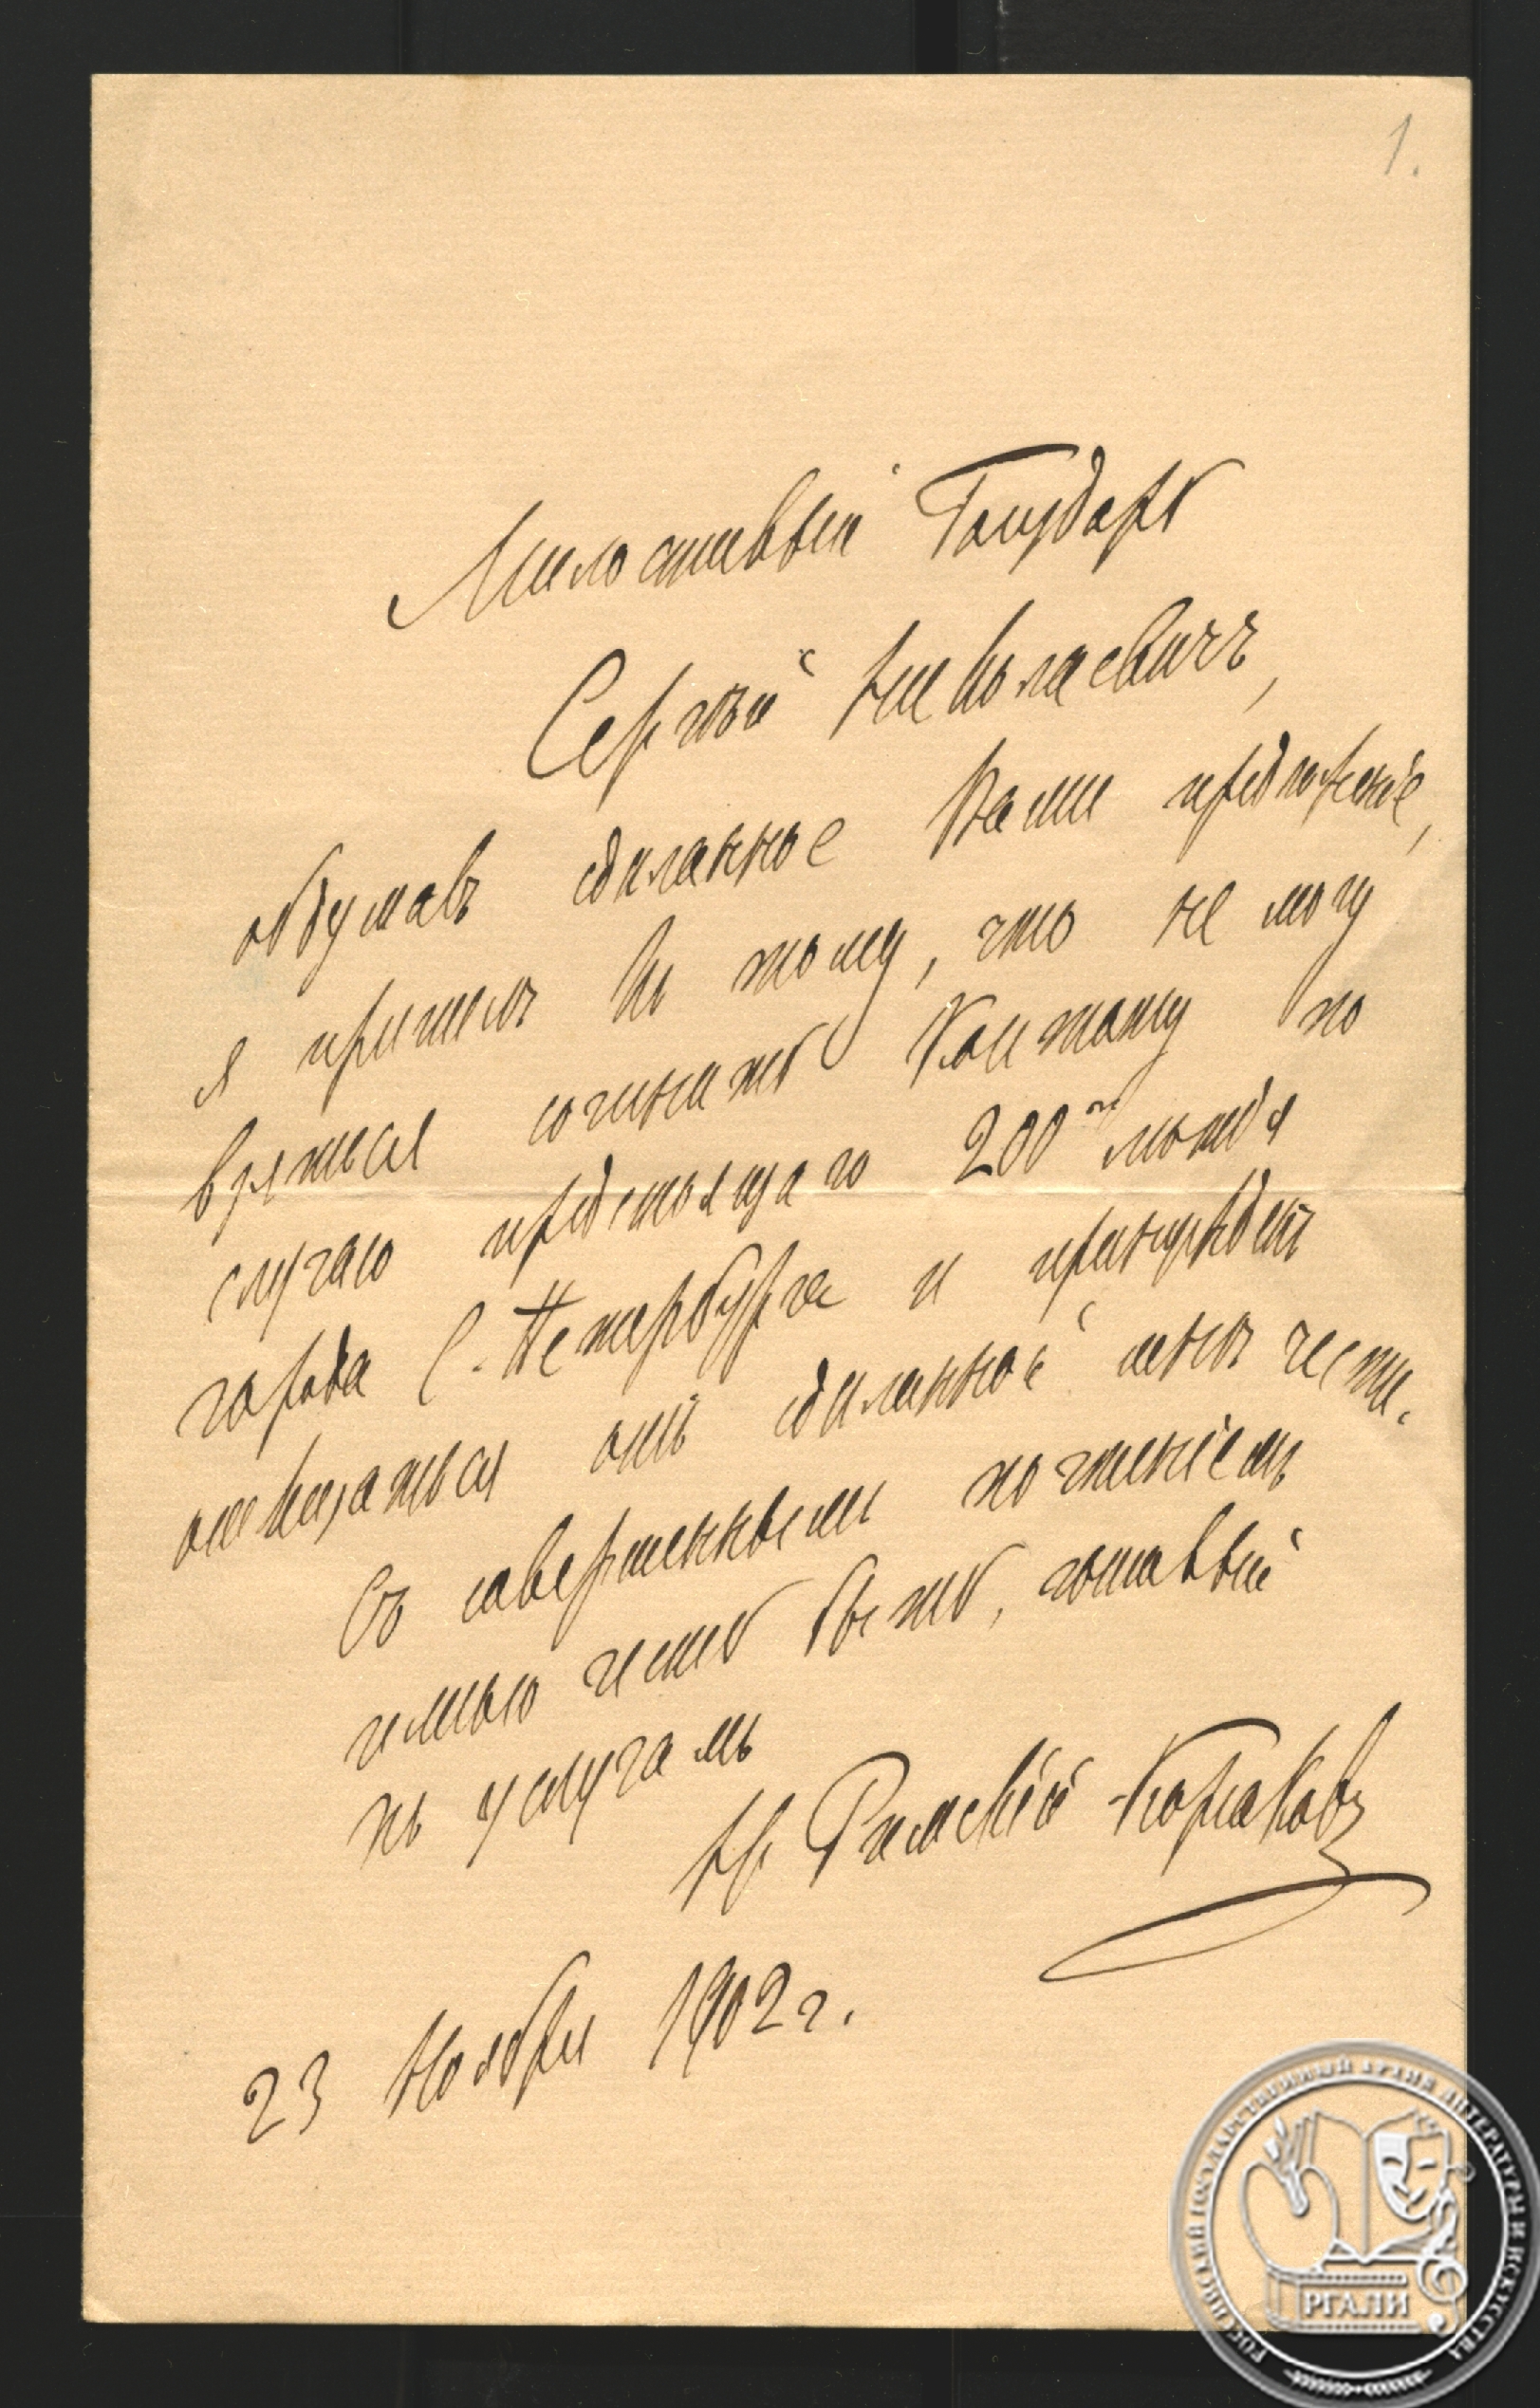 1.
Милостивый Государь
Сергѣй Николаевичъ,
обдумавъ сдѣланное Вами предложеніе,
я пришелъ къ тому, что не могу
взяться сочинить Кантату по
случаю предстоящаго 200тія
города С.-Петербурга и принужденъ
отказаться отъ сдѣланной мнѣ чести.
Съ совершеннымъ почтеніемъ
имѣю честь быть, готовый
къ услугамъ
Н. Римскій-Корсаковъ
23 Ноября 1902 г.
РОССИЙСКИЙ ГОСУДАРСТВЕННЫЙ АРХИВ ЛИТЕРАТУРЫ И ИСКУССТВА
РГАЛИ